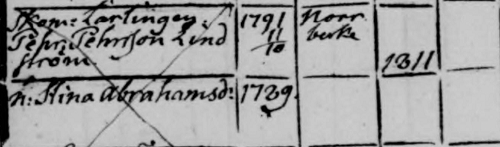 Skom: Lärlingen 1791 Norr
Pehr Pehrsson Lind 11/10 berke
ström. 1811
h: Stina Abrahamsd: 1789.